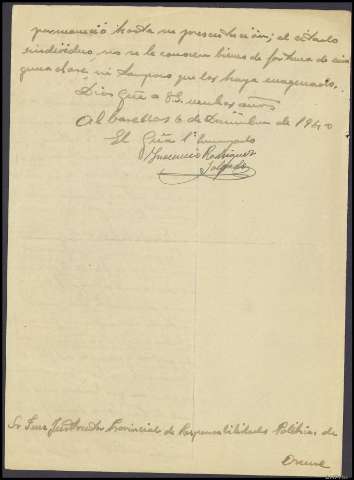 permaneció hasta su presentación; el citado
individuo, no se le conocen bienes de fortuna de nin
guna clase, ni tampoco que los haya enagenado.
Dios gúe a V.S. muchos años
Albarellos 6 de Diciembre de 1940
El Guardia 1º
Inocencio Rodriguez
Sr Juez Instructor Provincial de Responsabilidades Politicas de
Orense